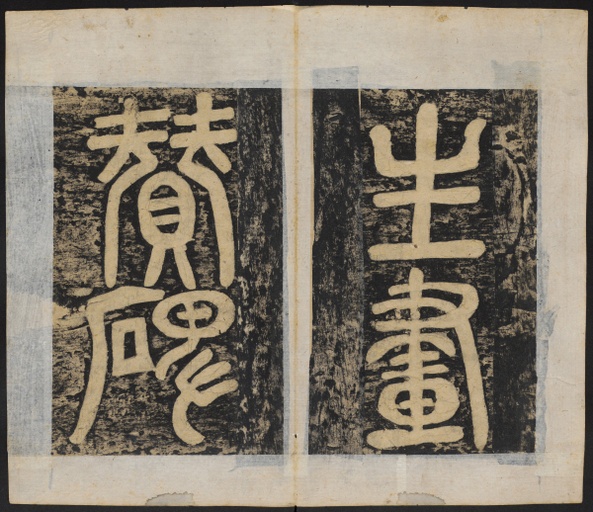 生畫
贊碑